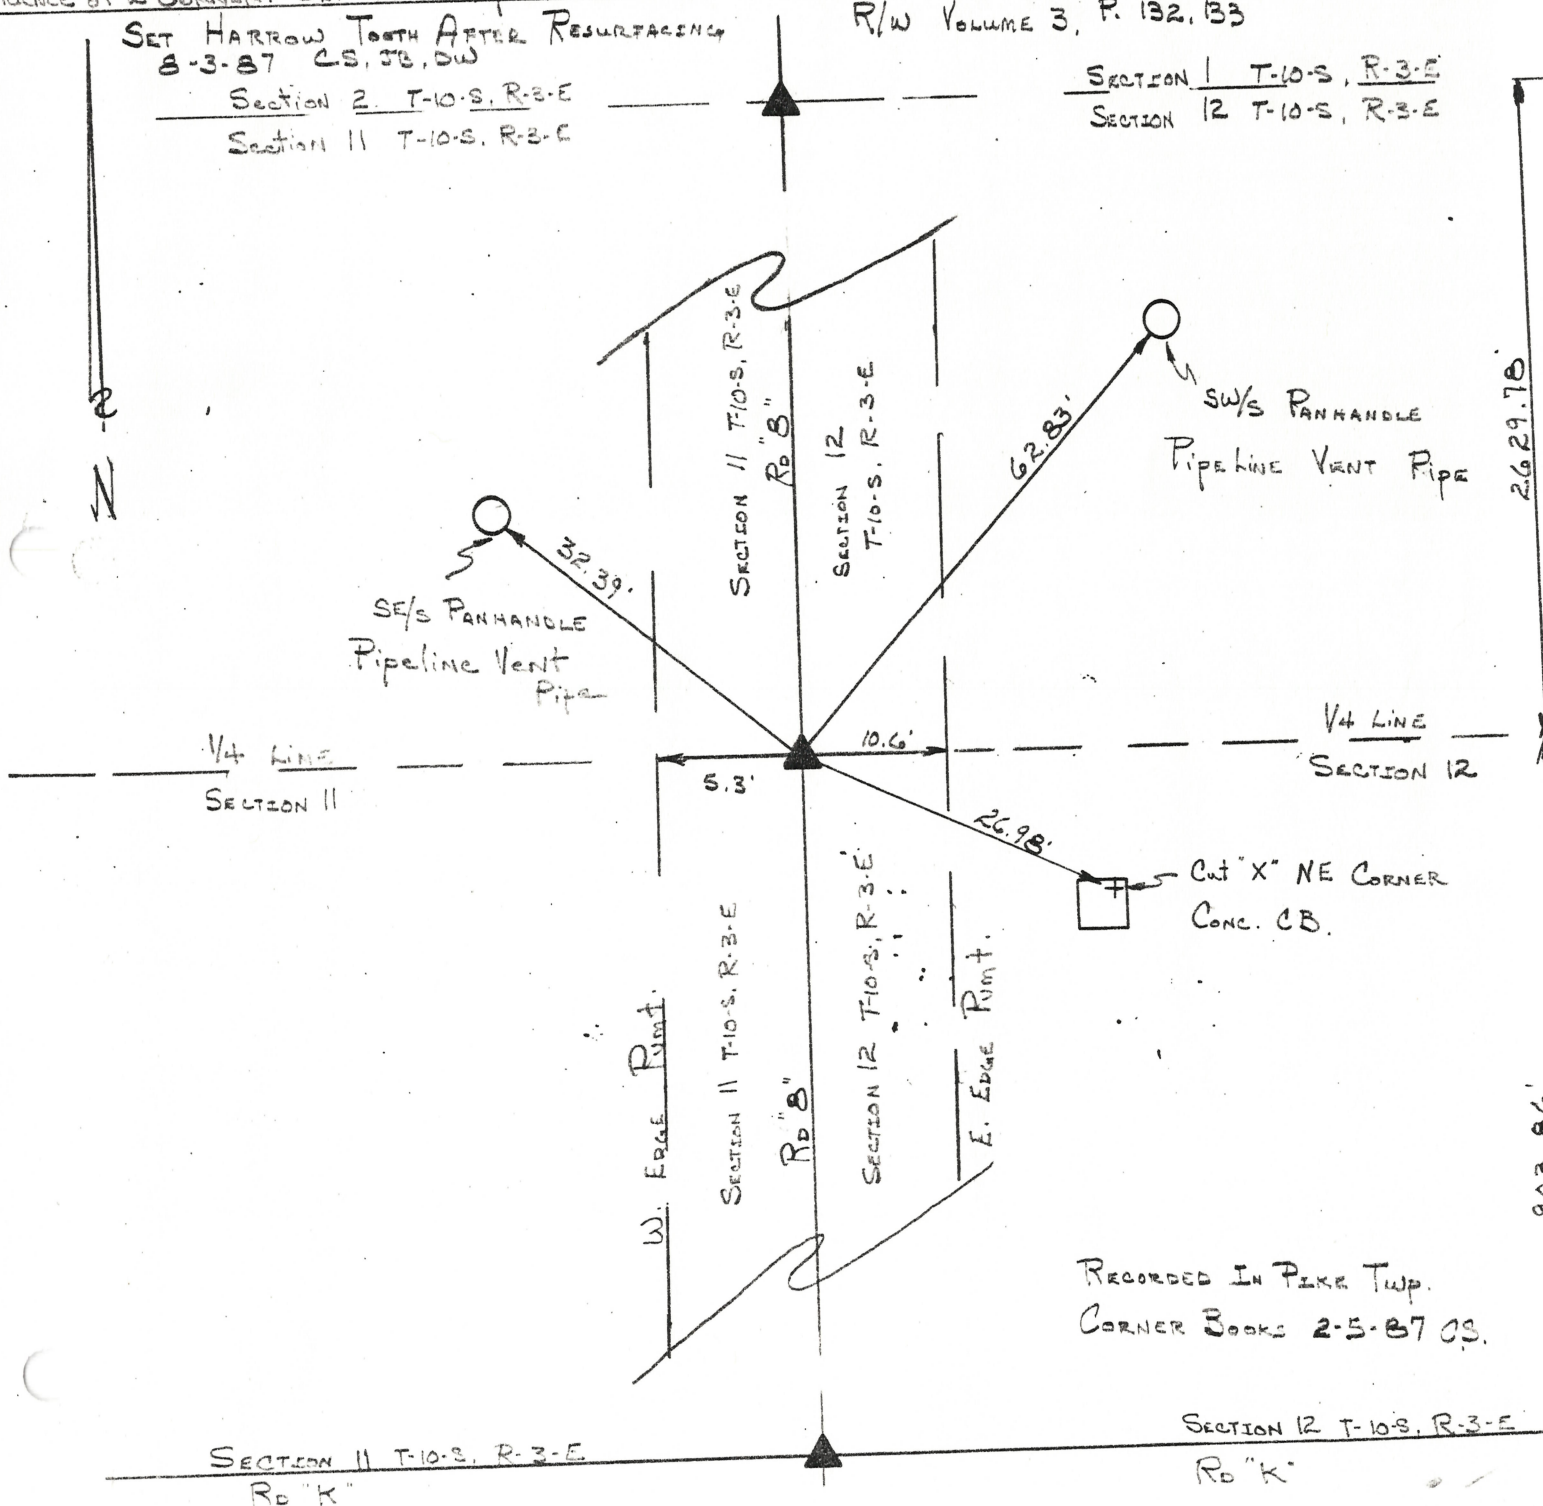 SET HARROW TOOTH AFTER RESURFACING
8-3-87 CS, JB, DW
R/W VOLUME 3, P. 132, 133
Section 2 T-10-S, R-3-E
Section 11 T-10-S, R-3-E
SECTION 1 T-10-S, R-3-E
SECTION 12 T-10-S, R-3-E
N
SECTION 11 T-10-S, R-3-E
RD "8"
SECTION 12
T-10-S, R-3-E
62.83'
SW/S PANHANDLE
PipeLine VENT Pipe
2629.78'
32.39'
SE/S PANHANDLE
Pipeline Vent
Pipe
1/4 LINE
SECTION 11
5.3'
10.6'
1/4 LINE
SECTION 12
26.98'
Cut "X" NE CORNER
CONC. CB.
W. EDGE Pvmt.
SECTION 11 T-10-S, R-3-E
RD "8"
SECTION 12 T-10-S, R-3-E
E. EDGE Pvmt.
RECORDED IN PIKE TWP.
CORNER BOOKS 2-5-87 CS.
SECTION 11 T-10-S, R-3-E
RD "K"
SECTION 12 T-10-S, R-3-E
RD "K"